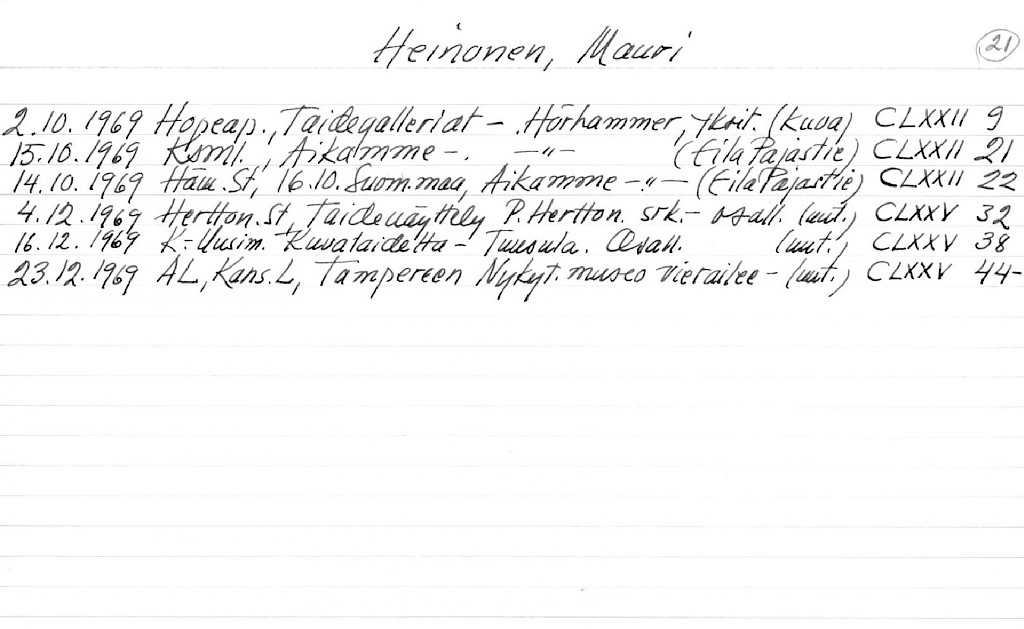 Heinonen, Mauri
21
2.10.1969 Hopeap., Taidegalleriat - Hörhammer, ykät. (kuva) CLXXII 9
15.10.1969 Ksml., Aikamme -. -"- (Eila Pajastie) CLXXII 21
14.10.1969 Häm. St, 16.10. Suom.maa, Aikamme -"- (Eila Pajastie) CLXXII 22
4.12.1969 Hertton. St, Taidenäyttely P. Hertton. srk. - osall. (uut.) CLXXV 32
16.12.1969 K.-Uusim. Kuvataidetta - Tuusula. Osall. (uut.) CLXXV 38
23.12.1969 AL, Kans. L, Tampereen Nykyt. museo vierailee - (uut.) CLXXV 44-